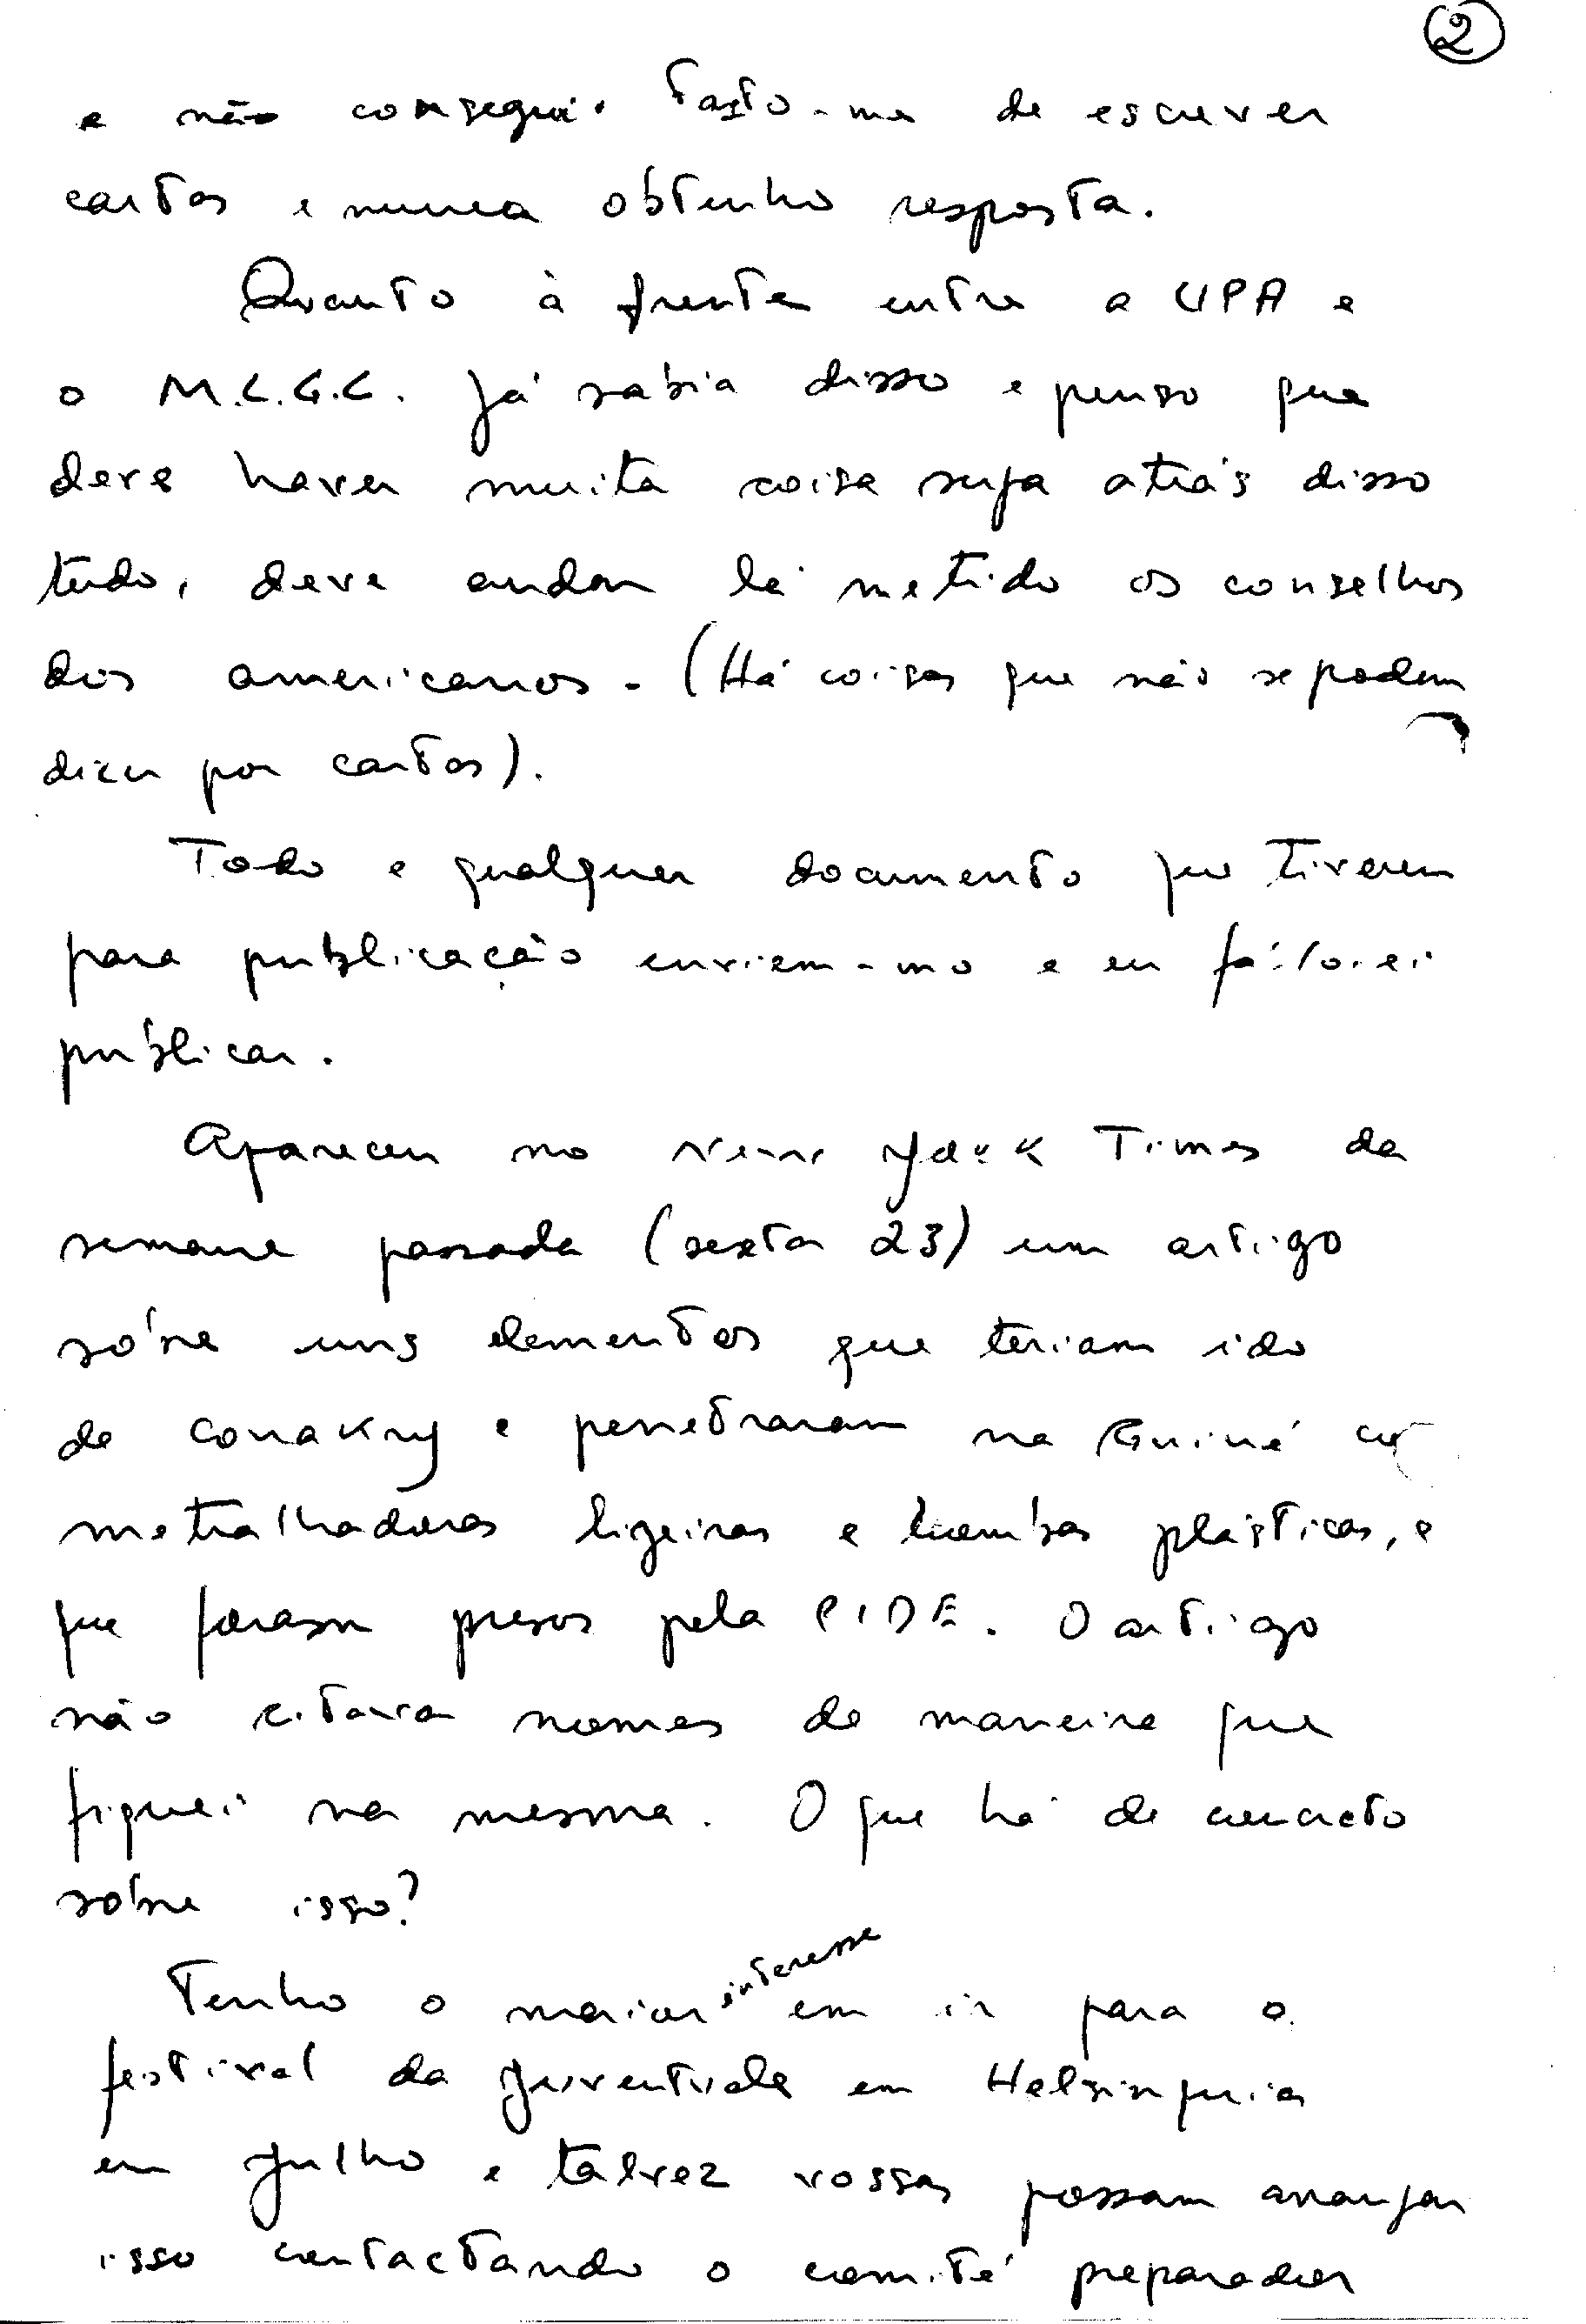 ②
e não consegui. Farto-me de escrever
cartas e nunca obtenho resposta.
Quanto à frente entre a UPA e
o M.L.G.C. já sabia disso e penso que
deve haver muita coisa suja atrás disso
tudo, deve andar lá metido os conselhos
dos americanos. (Há coisas que não se podem
dizer por cartas).
Todo e qualquer documento que tiverem
para publicação enviem-mo e eu fá-lo-ei
publicar.
Apareceu no New York Times da
semana passada (sexta 23) um artigo
sôbre uns elementos que teriam ido
de Conakry e penetraram na Guiné
metralhadoras ligeiras e bombas plásticas, e
que foram presos pela PIDE. O artigo
não citava nomes de maneira que
fiquei na mesma. O que há de concreto
sobre isso?
Tenho o maior interesse em ir para o
festival da juventude em Helsinquia
em Julho e talvez vossas possam arranjar
isso contactando o comité preparador